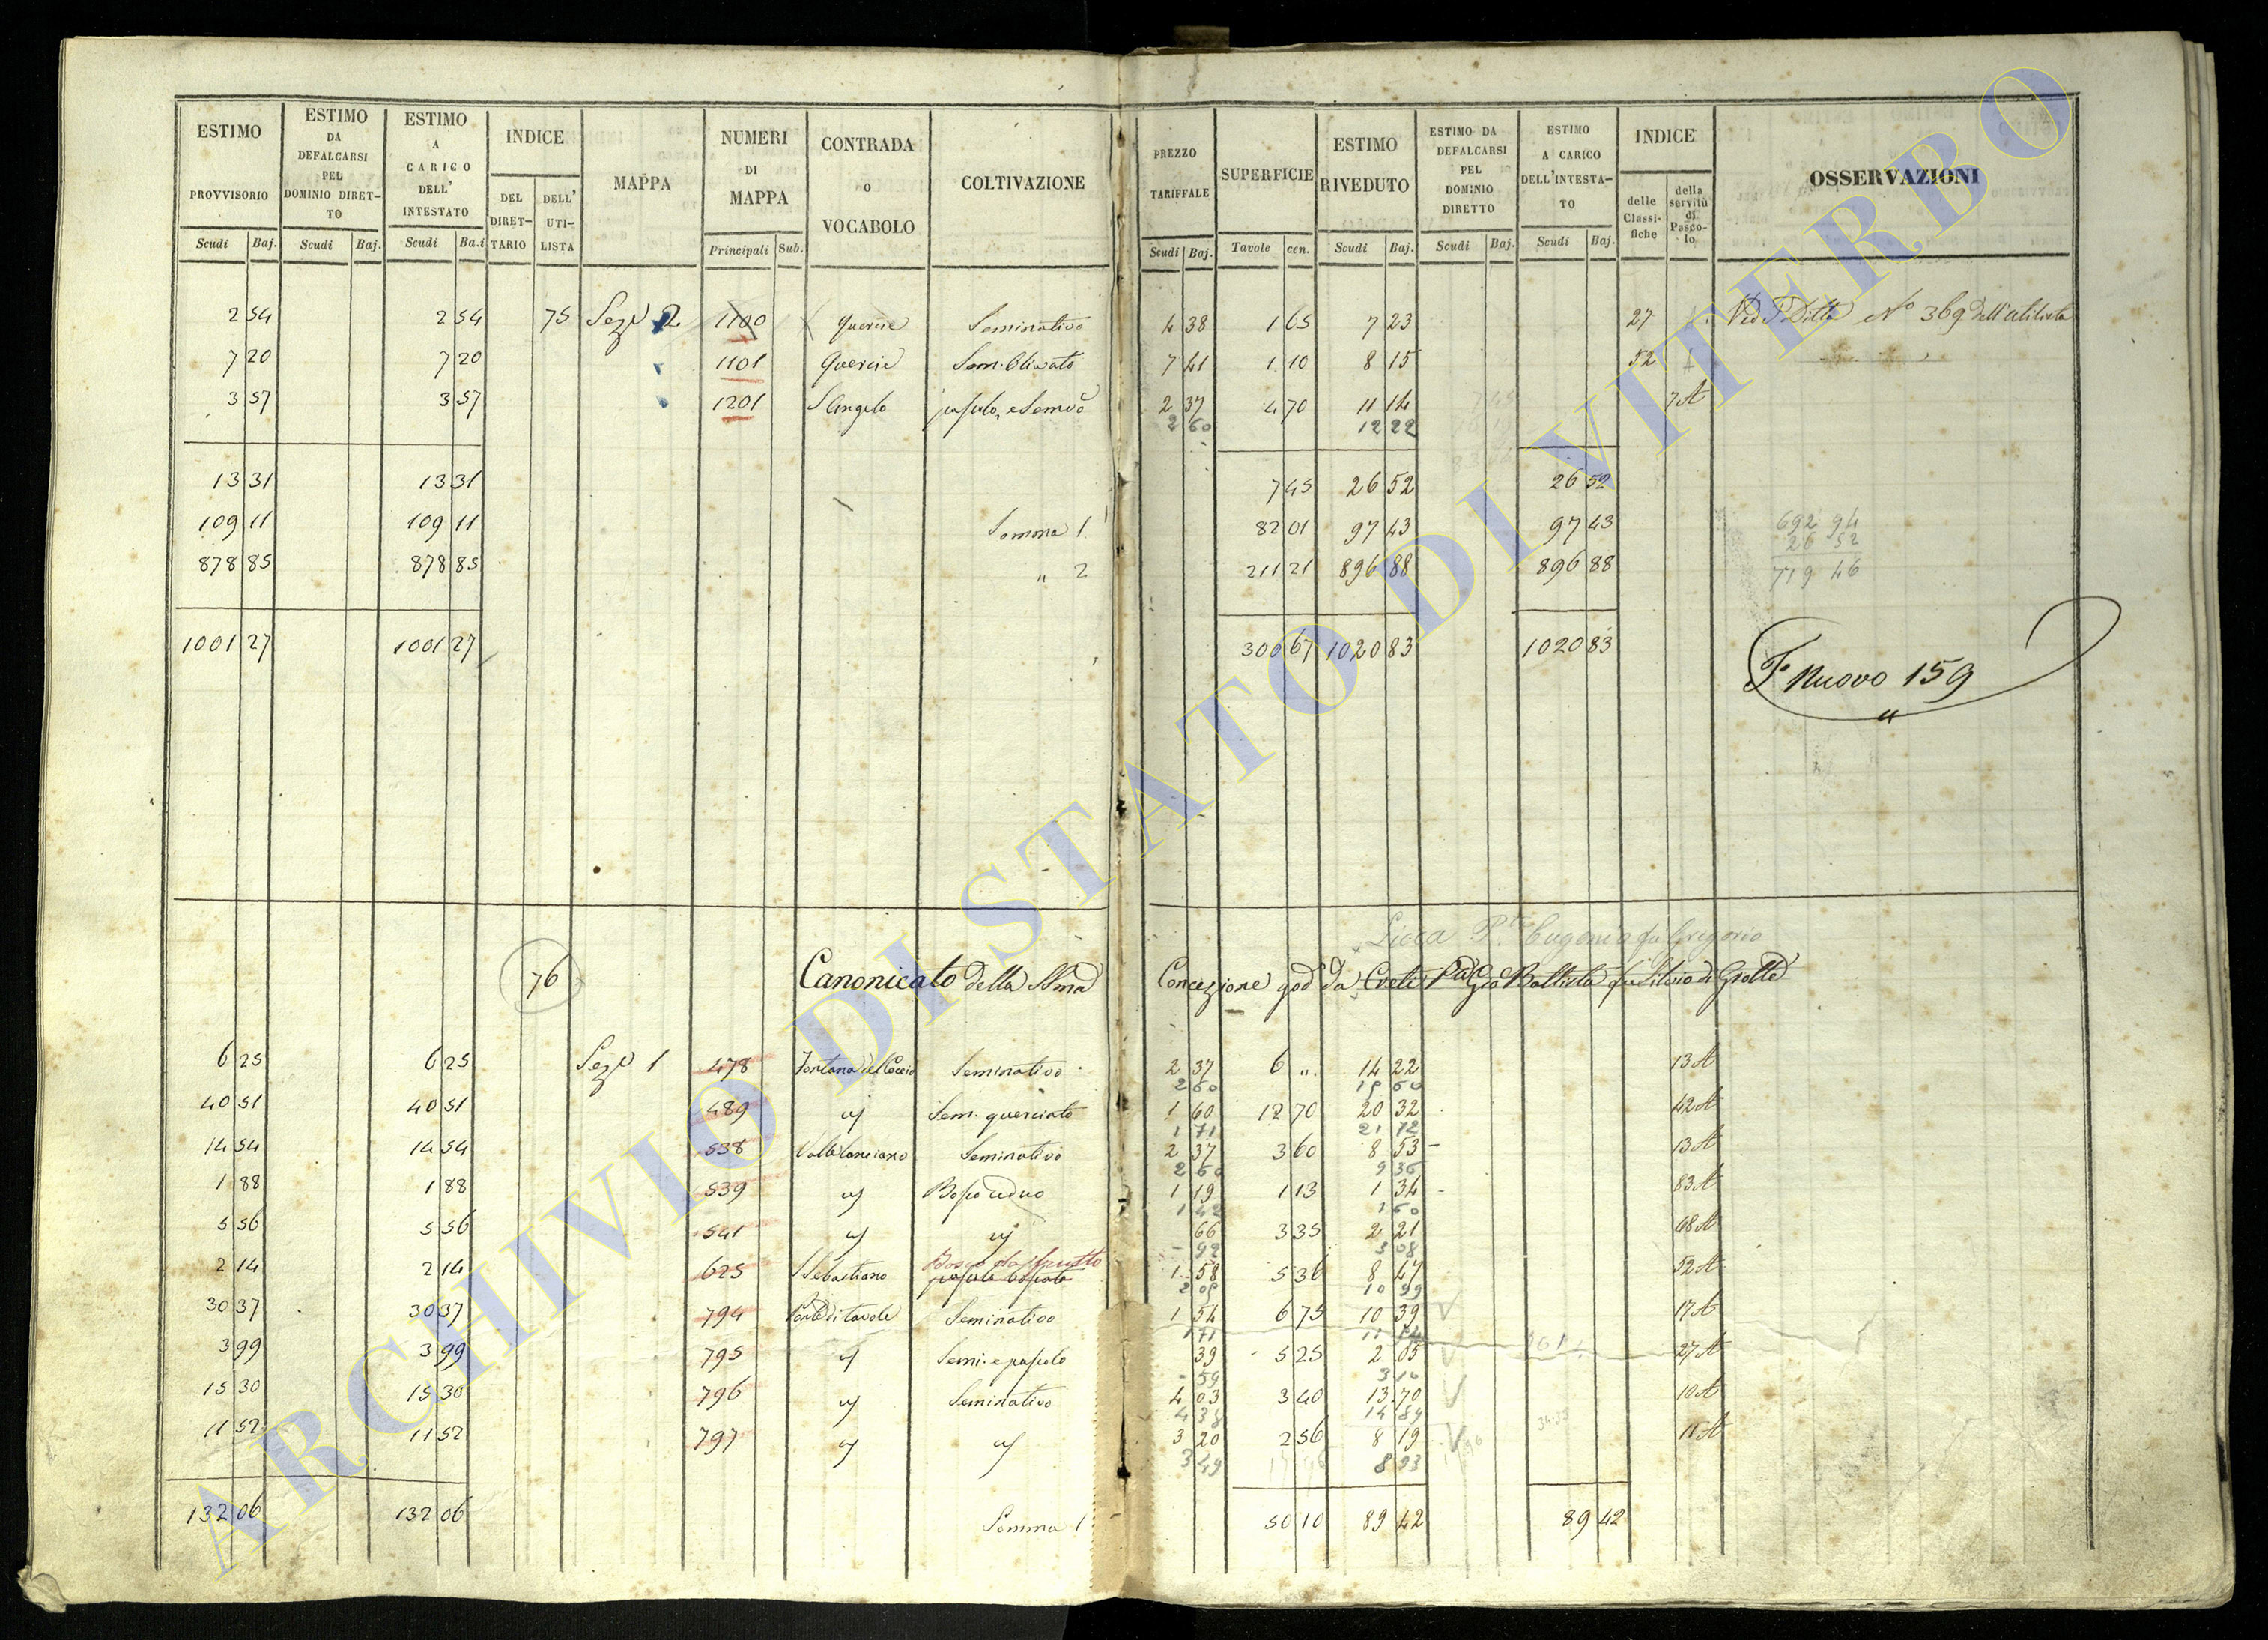 ESTIMO PROVVISORIO Scudi Baj.
ESTIMO DA DEFALCARSI PEL DOMINIO DIRET-TO Scudi Baj.
ESTIMO A CARICO DELL' INTESTATO Scudi Ba.i
INDICE DEL DIRET-TARIO DELL' UTI-LISTA
MAPPA
NUMERI DI MAPPA Principali Sub.
CONTRADA O VOCABOLO
COLTIVAZIONE
PREZZO TARIFFALE Scudi Baj.
SUPERFICIE Tavole cen.
ESTIMO RIVEDUTO Scudi Baj.
ESTIMO DA DEFALCARSI PEL DOMINIO DIRETTO Scudi Baj.
ESTIMO A CARICO DELL'INTESTA-TO Scudi Baj.
INDICE delle Classi-fiche della servitù di Pasco-lo
OSSERVAZIONI
2 54 2 54 75 Sezе 2 1100 Quercie Seminativo 4 38 1 65 7 23 27 Ved P. Ditta No 369 dell'utilista
7 20 7 20 1101 Quercie Sem. Olivato 7 41 1 10 8 15 52
3 57 3 57 1201 S Angelo pascolo, e Semvo 2 37 4 70 11 14 7 A
2 60 12 22
13 31 13 31 7 45 26 52 26 52
109 11 109 11 Somma 1 82 01 97 43 97 43 692 94
26 52
878 85 878 85 " 2 211 21 896 88 896 88 719 46
1001 27 1001 27 300 67 1020 83 1020 83
Fo Nuovo 159
"
Licca P. Eugenio fu Gregorio
76 Canonicato della SSma Concezione god da Creti Gio Battista fu Silvio di Grotte
6 25 6 25 Sez 1 478 Fontana del Coccio Seminativo 2 37 6 " 14 22 13 A
2 60 15 60
40 51 40 51 489 Sem. querciato 1 60 12 70 20 32 42 A
1 71 21 72
14 54 14 54 538 Valle Lanciano Seminativo 2 37 3 60 8 53 13 A
2 60 9 36
1 88 1 88 539 Bosco ceduo 1 19 1 13 1 34 83 A
1 42 1 60
5 56 5 56 541 66 3 35 2 21 68 A
92 3 08
Bosco da frutto
2 14 2 14 625 S Sebastiano pascolo boscato 1 58 5 36 8 47 52 A
2 05 10 99
30 37 30 37 794 Ponte di tavole Seminativo 1 54 6 75 10 39 17 A
1 71 11 54
3 99 3 99 795 Semi. e pascolo 39 5 25 2 05 27 A
59 3 10
15 30 15 30 796 Seminativo 4 03 3 40 13 70 10 A
4 38 14 89
11 52 11 52 797 3 20 2 56 8 19 11 A
3 49 8 93
132 06 132 06 Somma 1 50 10 89 42 89 42
ARCHIVIO DI STATO DI VITERBO